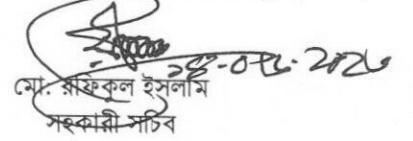 মো. রফিকুল ইসলাম
সহকারী সচিব